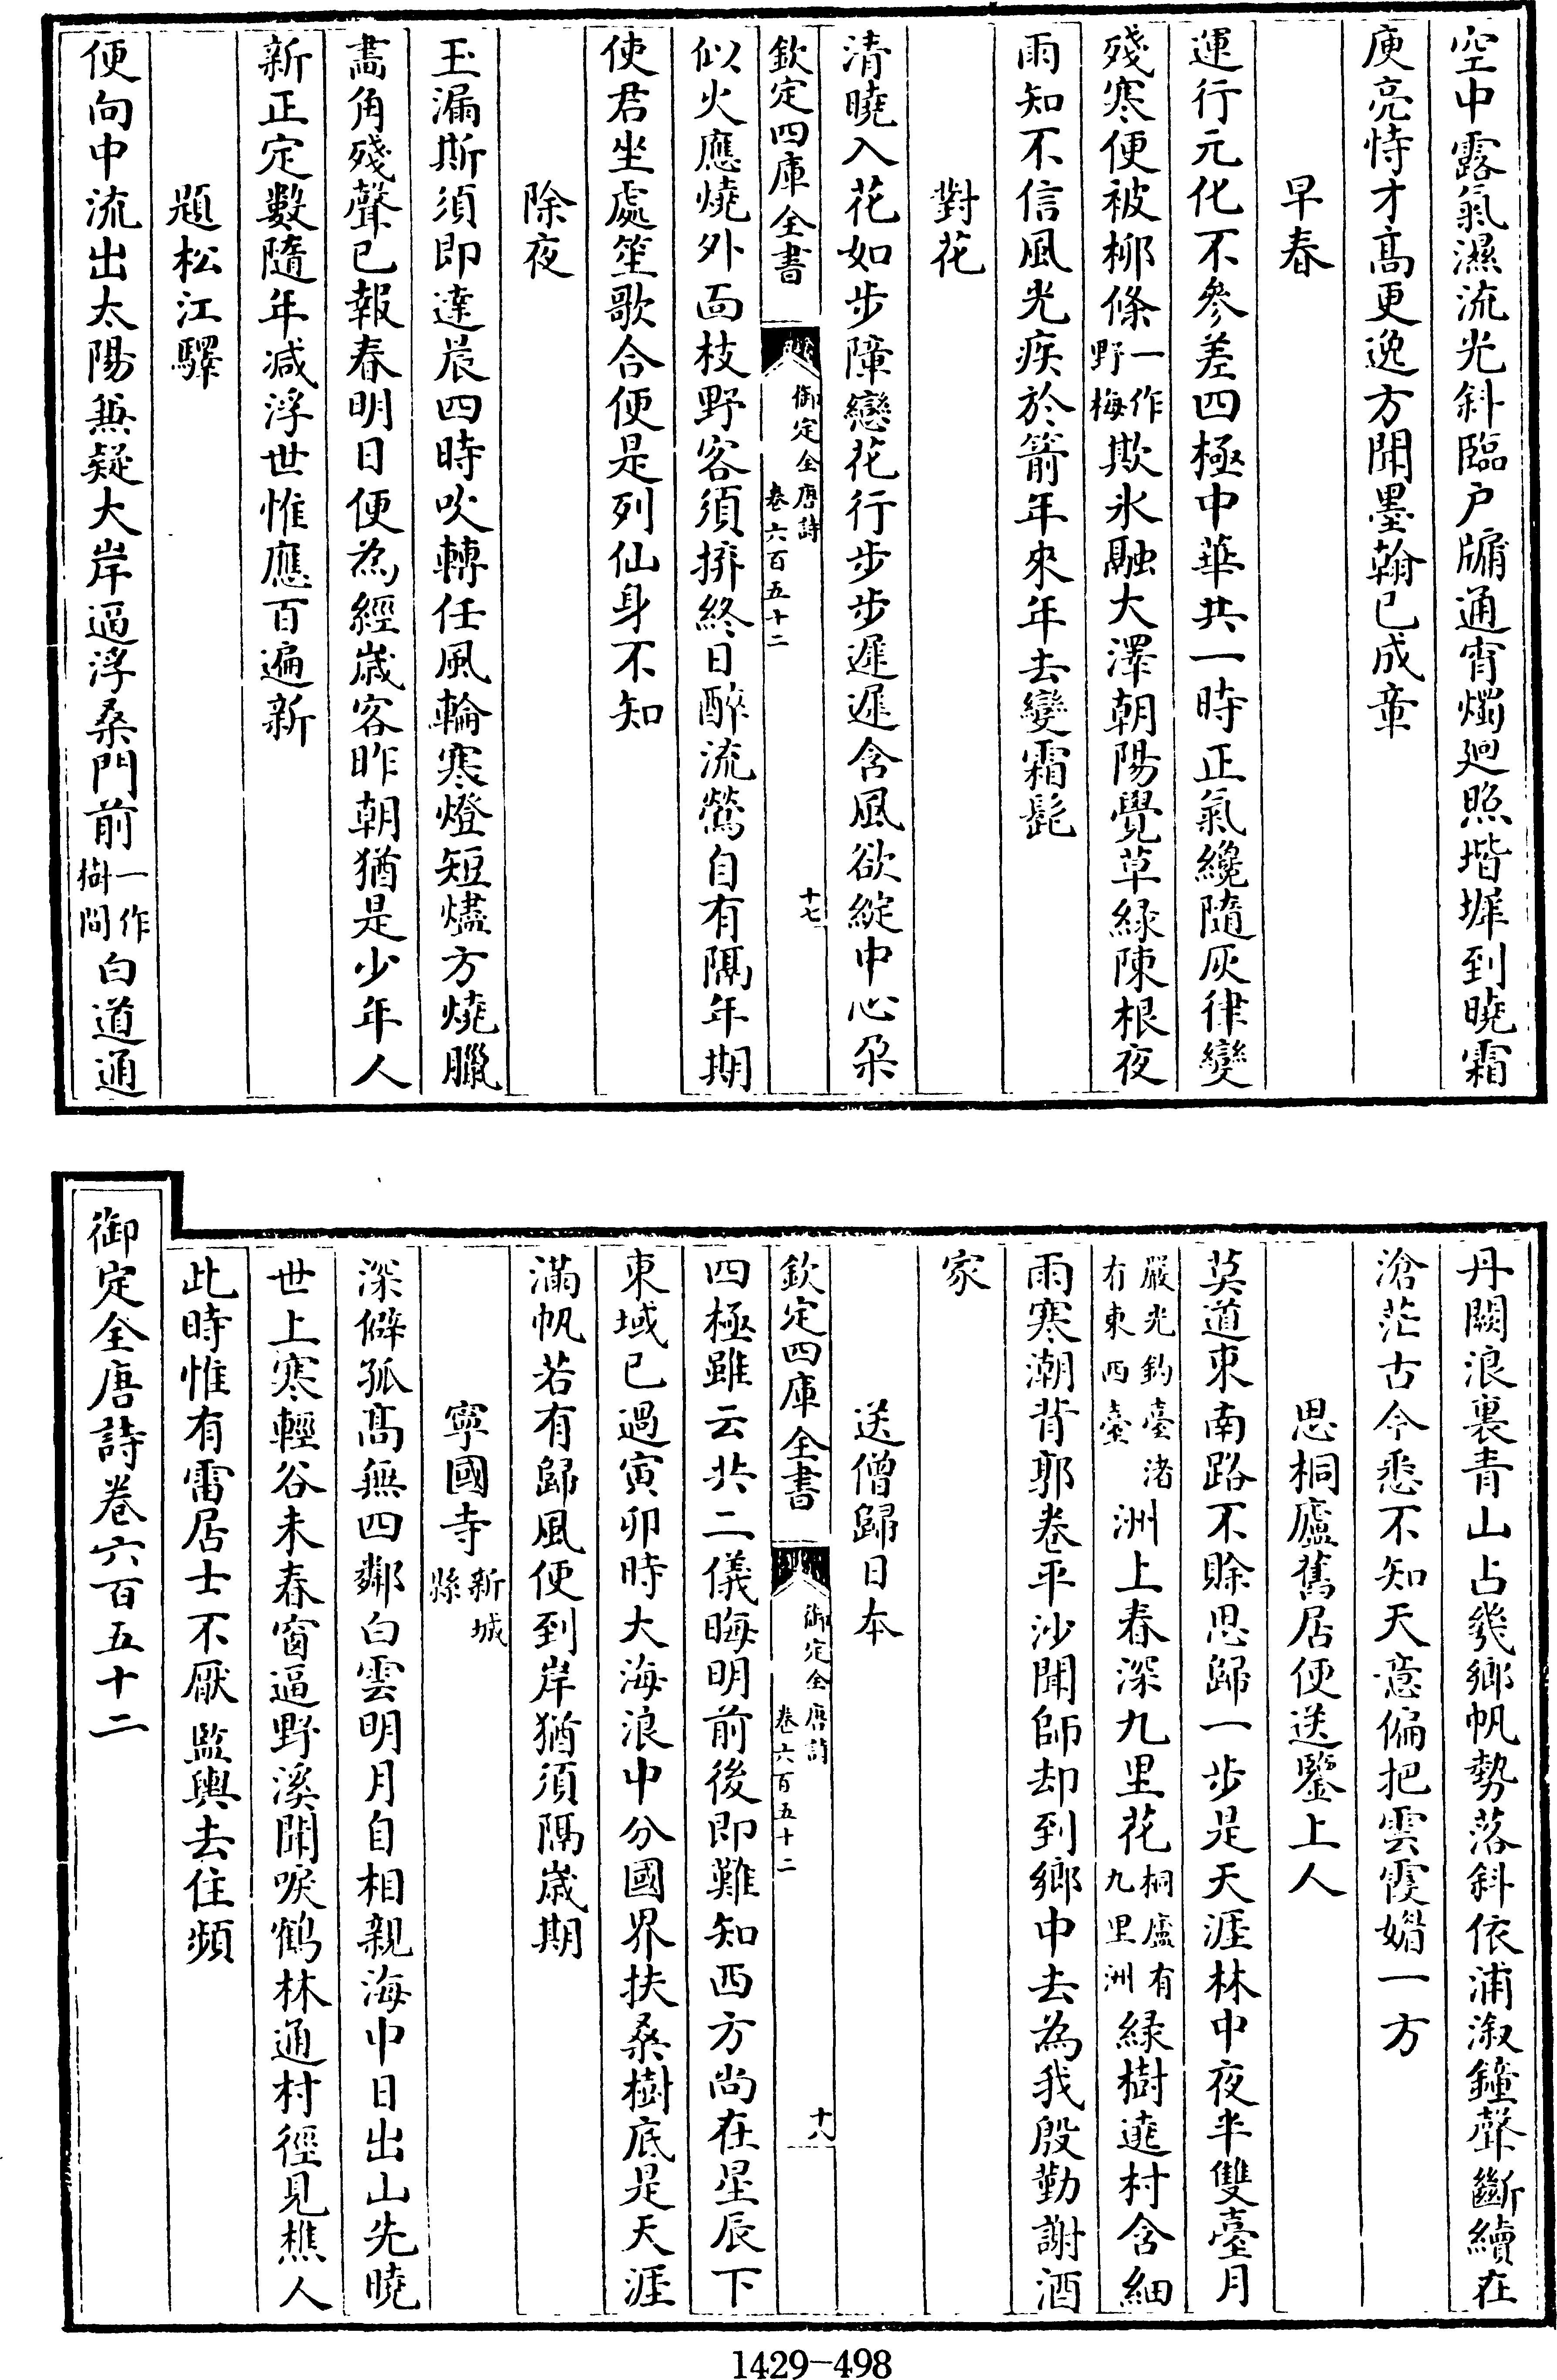 空中露氣濕流光斜臨户牖通宵燭迴照堦墀到曉霜
庾亮恃才髙更逸方聞墨翰已成章
早春
運行元化不參差四極中華共一時正氣纔隨灰律變
殘寒便被柳條一作野梅欺氷融大澤朝陽覺草緑陳根夜
雨知不信風光疾於箭年來年去變霜髭
對花
清曉入花如步障戀花行步步遲遲含風欲綻中心朵
欽定四庫全書 御定全唐詩 卷六百五十二 十七
似火應燒外面枝野客須拚終日醉流鶯自有隔年期
使君坐處笙歌合便是列仙身不知
除夜
玉漏斯須即達晨四時吹轉任風輪寒燈短燼方燒臘
畵角殘聲已報春明日便為經歲客昨朝猶是少年人
新正定數隨年减浮世惟應百遍新
題松江驛
便向中流出太陽無疑大岸逼浮桑門前一作樹間白道通
丹闕浪裏青山占幾鄉帆勢落斜依浦溆鐘聲斷續在
滄茫古今悉不知天意偏把雲霞媚一方
思桐廬舊居便送鑒上人
莫道東南路不賒思歸一步是天涯林中夜半雙臺月
嚴光釣臺渚有東西臺洲上春深九里花桐廬有九里洲緑樹遶村含細
雨寒潮背郭卷平沙聞師却到鄉中去為我殷勤謝酒
家
送僧歸日本
欽定四庫全書 御定全唐詩 卷六百五十二 十八
四極雖云共二儀晦明前後即難知西方尚在星辰下
東域已過寅卯時大海浪中分國界扶桑樹底是天涯
滿帆若有歸風便到岸猶須隔歲期
寧國寺新城縣
深僻孤髙無四鄰白雲明月自相親海中日出山先曉
世上寒輕谷未春窗逼野溪聞唳鶴林通村徑見樵人
此時惟有雷居士不厭監輿去住頻
御定全唐詩卷六百五十二
1429-498